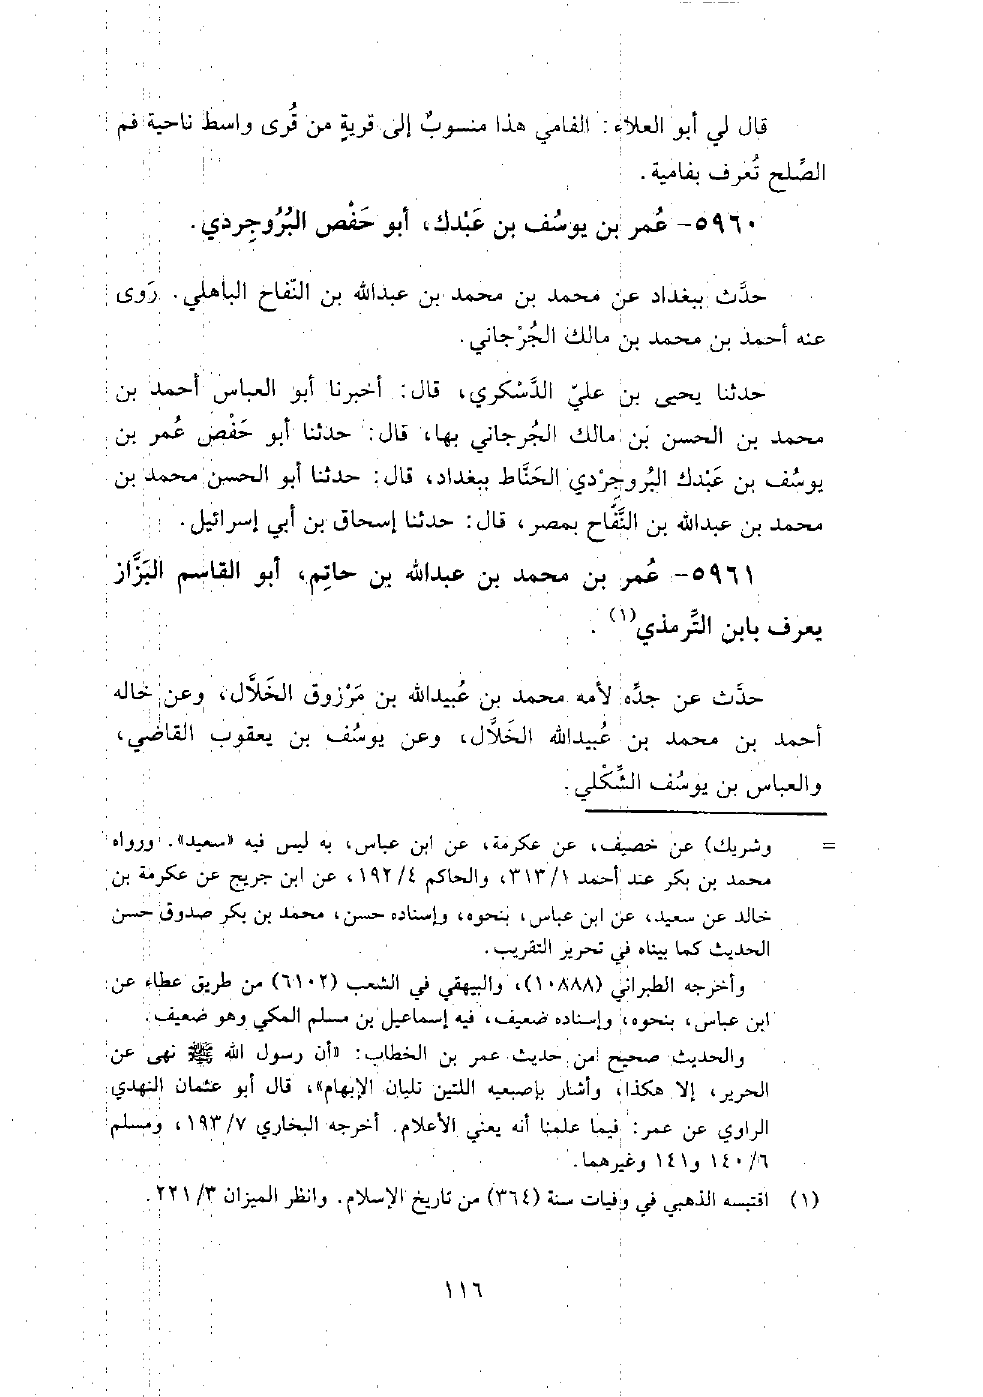 قال لي أبو العلاء: الفامي هذا منسوبٌ إلى قريةٍ من قُرى واسط ناحية فم
الصِّلح تُعرف بفامية.
٥٩٦٠- عُمر بن يوسُف بن عَبْدك، أبو حَفْص البُرُوجِردي.
حدَّث ببغداد عن محمد بن محمد بن عبدالله بن النّفاح الباهلي. رَوى
عنه أحمد بن محمد بن مالك الجُرْجاني.
حدثنا يحيى بن عليّ الدَّسْكري، قال: أخبرنا أبو العباس أحمد بن
محمد بن الحسن بن مالك الجُرجاني بها، قال: حدثنا أبو حَفْص عُمر بن
يوسُف بن عَبْدك البُروجِرْدي الحَنَّاط ببغداد، قال: حدثنا أبو الحسن محمد بن
محمد بن عبدالله بن النَّفَّاح بمصر، قال: حدثنا إسحاق بن أبي إسرائيل.
٥٩٦١- عُمر بن محمد بن عبدالله بن حاتِم، أبو القاسم البَزَّاز
يعرف بابن التِّرمذي(١).
حدَّث عن جدِّه لأمه محمد بن عُبيدالله بن مَرْزوق الخَلَّال، وعن خاله
أحمد بن محمد بن عُبيدالله الخَلاَّل، وعن يوسُف بن يعقوب القاضي،
والعباس بن يوسُف الشِّكْلي.
= وشريك) عن خصيف، عن عكرمة، عن ابن عباس، به ليس فيه «سعيد». ورواه
محمد بن بكر عند أحمد ١/ ٣١٣، والحاكم ٤/ ١٩٢، عن ابن جريج عن عكرمة بن
خالد عن سعيد، عن ابن عباس، بنحوه، وإسناده حسن، محمد بن بكر صدوق حسن
الحديث كما بيناه في تحرير التقريب.
وأخرجه الطبراني (١٠٨٨٨)، والبيهقي في الشعب (٦١٠٢) من طريق عطاء عن
ابن عباس، بنحوه، وإسناده ضعيف، فيه إسماعيل بن مسلم المكي وهو ضعيف.
والحديث صحيح من حديث عمر بن الخطاب: «أن رسول الله ﷺ نهى عن
الحرير، إلا هكذا، وأشار بإصبعيه اللتين تليان الإبهام»، قال أبو عثمان النهدي
الراوي عن عمر: فيما علمنا أنه يعني الأعلام. أخرجه البخاري ٧/ ١٩٣، ومسلم
٦/ ١٤٠ و١٤١ وغيرهما.
(١) اقتبسه الذهبي في وفيات سنة (٣٦٤) من تاريخ الإسلام. وانظر الميزان ٣/ ٢٢١.
١١٦